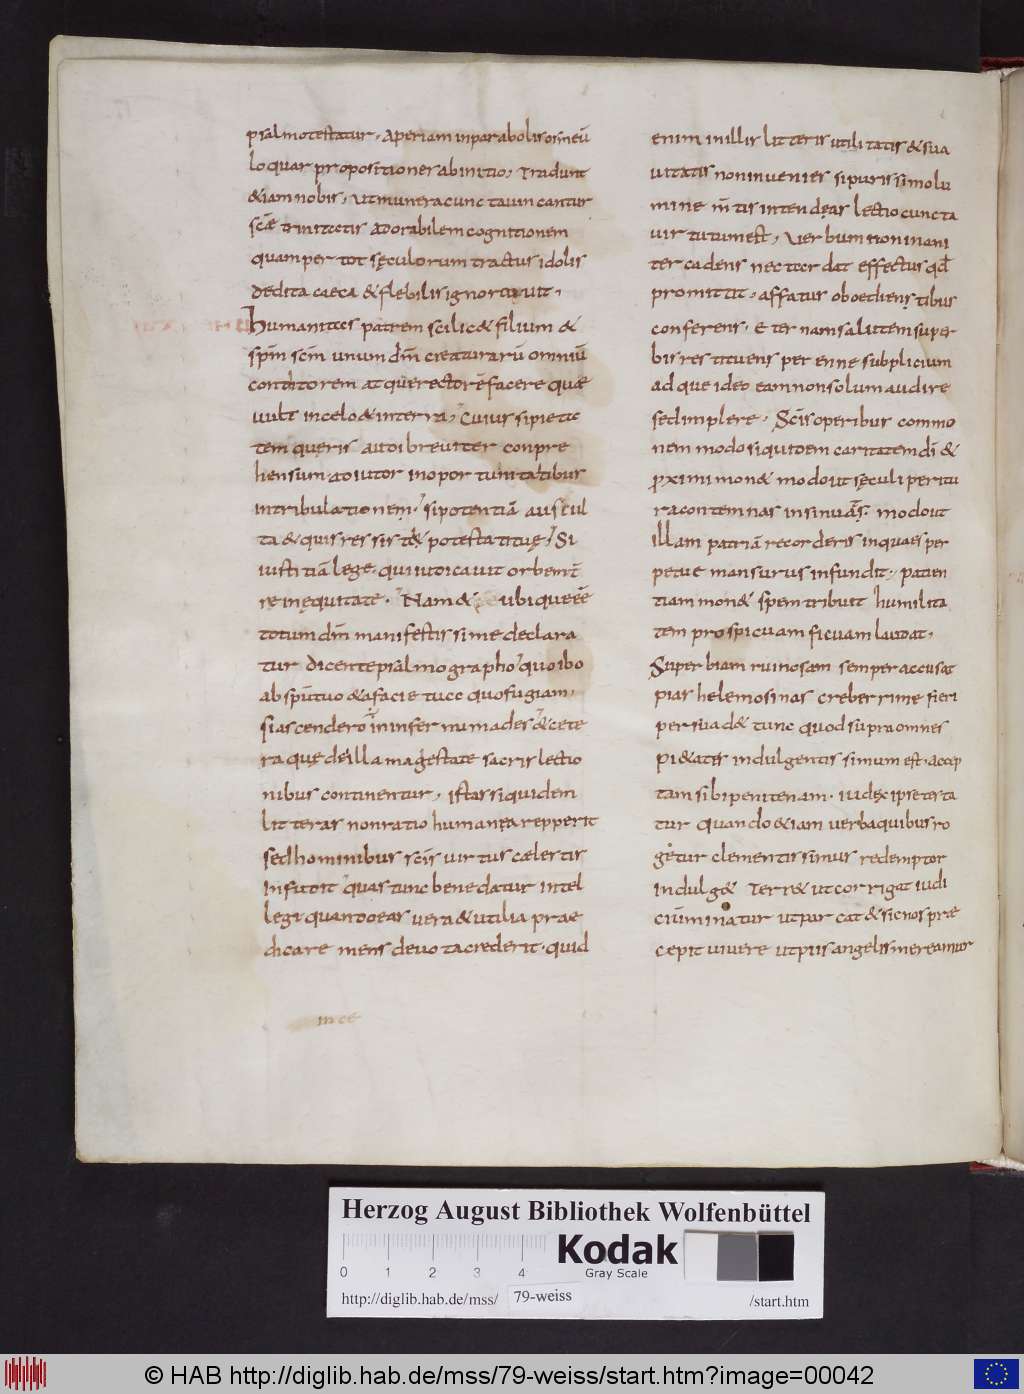 psalmo testatur. Aperiam in parabolis os meū
loquar propositiones ab initio. Tradunt
&iam nobis. ut munera cunctaum cantur
scæ trinitatis adorabilem cognitionem
quam per tot sęculorum tractus idolis
dedita caeca & flebilis ignorauit.
Humanitas patrem scilic& filium &
sp̄m sc̄m unum dm̄ creaturarū omniū
conditorem atque rectorē facere quæ
uult in celo & in terra, Cuius si pieta
tem queris audi breuiter conpre
hensum. adiutor in oportunitatibus
in tribulationem, si potentiā auscul
ta & quis resistet potestati tuę, Si
iustitiā lege. qui iudicauit orbem t̄
rę in ęquitate. Nam & ubique eē
totum dm̄ manifestissime declara
tur dicente psalmographo quo ibo
ab spū tuo & a facie tua quo fugiam.
si ascendero in infernum ades & cete
ra que de illa magestate sacris lectio
nibus continentur. istas siquidem
litteras non ratio humanea repperit
sed hominibus sc̄is uirtus cælestis
infudit quas tunc bene datur intel
legi quando eas uera & utilia præ
dicare mens deuota crederit. quid
ince
enim in illis litteris utilitatis & sua
uitatis non inuenies si purissimo lu
mine mentis intendęas lectio cuncta
uirtutum est. Verbum non inani
ter cadens nec tardat effectus qd̄
promittit. affatus oboedienstibus
conferens. & ternam salutem super
bis restituens perenne subplicium
ad que ideo eam non solum audire
sed implere. Sc̄is operibus commo
nem modo siquidem caritatem dī &
proximi mon& modo ut sęculi peritu
ra contemnas insinuas. modo ut
illam patriā recorderis in qua es per
petue mansurus infundit. patien
tiam mon& spem tribuit humilita
tem prospicuam ficuam laudat.
Superbiam ruinosam semper accusat
pias helemosinas creberrime fieri
persuad& tunc quod supra omnes
pi&ates indulgentissimum est. accep
tam sibi penitenam. iudex ipse testa
tur quando &iam uerba quibus ro
gętur clementissimus redemptor
indulg& Terr& ut corrigat iudi
cium minatur ut purcat & sic nos præ
cepit uiuere ut piis angelis mereamur
Herzog August Bibliothek Wolfenbüttel
0 1 2 3 4
Kodak
Gray Scale
http://diglib.hab.de/mss/ 79-weiss /start.htm
© HAB http://diglib.hab.de/mss/79-weiss/start.htm?image=00042